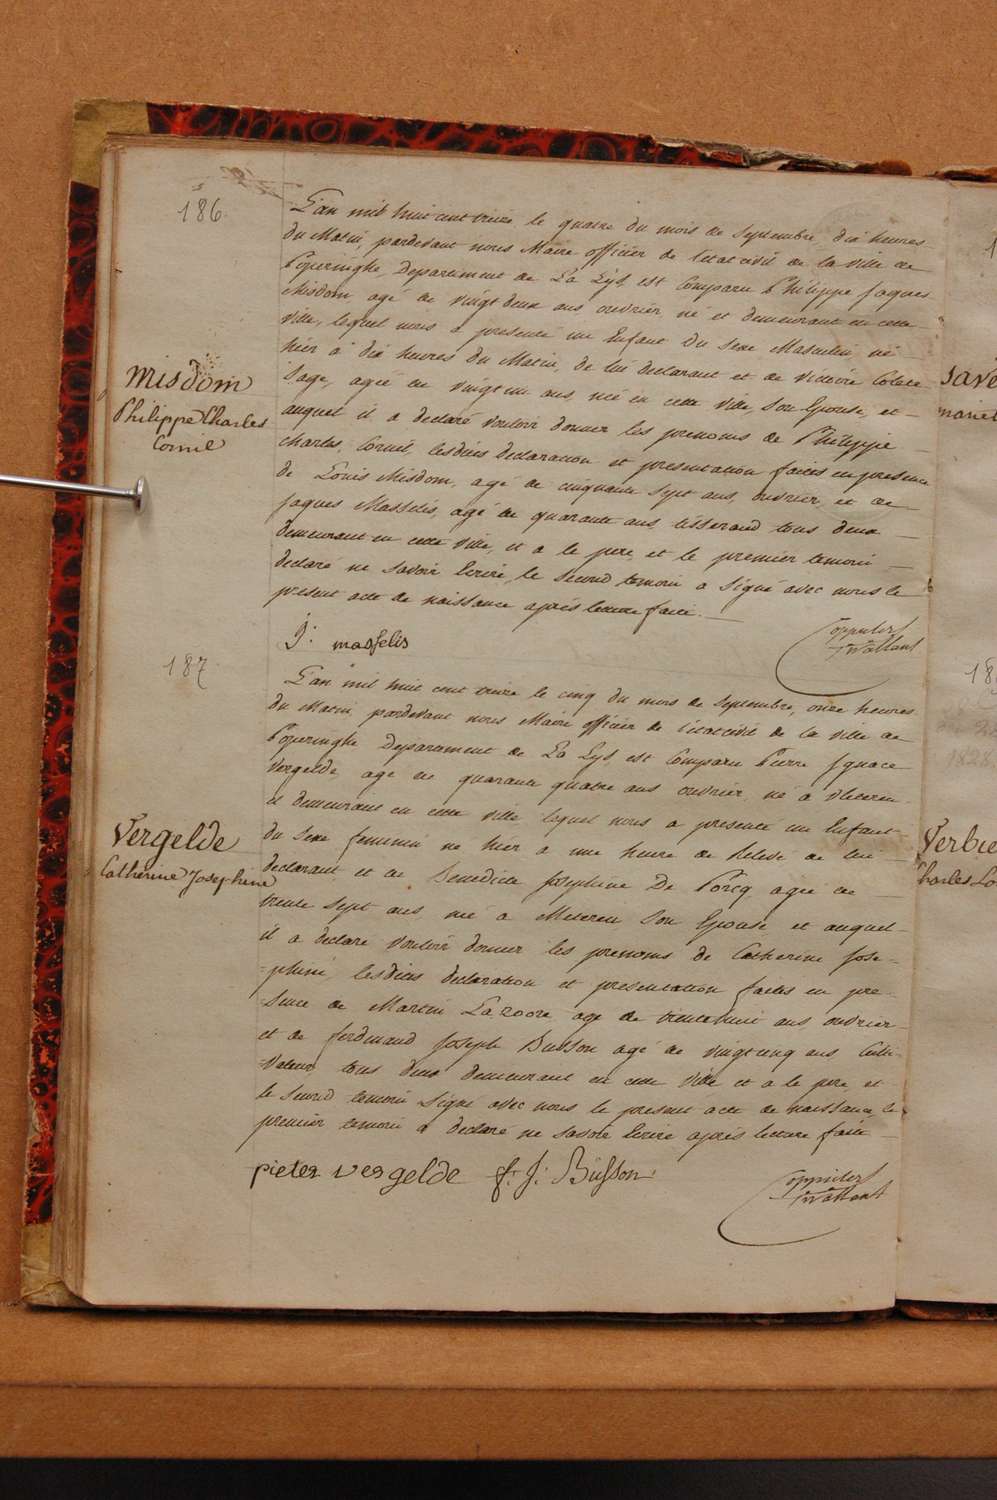 186
L'an mil huit cent treize le quatre du mois de Septembre, dix heures
du Matin, pardevant nous Maire officier de l'etat civil de la ville de
Poperinghe, Departement de La Lys, est Comparu Philippe Jaques
Misdom, agé de vingt deux ans ouvrier, né et demeurant en cette
ville, lequel nous a presenté un Enfant du Sexe Masculin né
hier à dix heures du Matin, de lui declarant et de Victoire Colete
Sage, agée de vingt un ans, née en cette ville, Son Epouse, et
auquel il a declaré vouloir donner les prenoms de Philippe
Charles, Corneil, lesdites declaration et presentation faites en presence
de Louis Misdom, agé de cinquante Sept ans, ouvrier, et de
Jaques Masselis, agé de quarante ans, tisserand tous deux
demeurant en cette ville, et a le pere, et le premier temoin
declaré ne savoir Ecrire, le second temoin a Signé avec nous le
present acte de naissance après lecture faite.
Misdom
Philippe Charles
Corneil
J: masselis
187
L'an mil huit cent treize le cinq du mois de Septembre, onze heures
du Matin, pardevant nous Maire officier de l'etat civil de la ville de
Poperinghe Departement de La Lys, est Comparu Pierre Ignace
Vergelde, agé de quarante quatre ans ouvrier, né à
et demeurant en cette ville lequel nous a presenté un Enfant
du Sexe feminin né hier a une heure de Relevé de lui
declarant, et de Benedicte Josephine De Porcq, agée de
trente Sept ans, née a Meteren Son Epouse et auquel
il a declaré vouloir donner les prenoms de Catherine Jose-
-phine, lesdites declaration et presentation faites en pre-
-sence de Martin agé de trente huit ans ouvrier
et de ferdinand Joseph Busson agé de vingt cinq ans Culti-
-vateur, tous deux demeurant en cette ville et a le pere, et
le Second temoin Signé avec nous le present acte de naissance, le
premier temoin a declaré ne savoir Ecrire après lecture faite
Vergelde
Catherine Josephine
pieter vergelde f: J: Büsson
Save
Verbie
Charles Lo